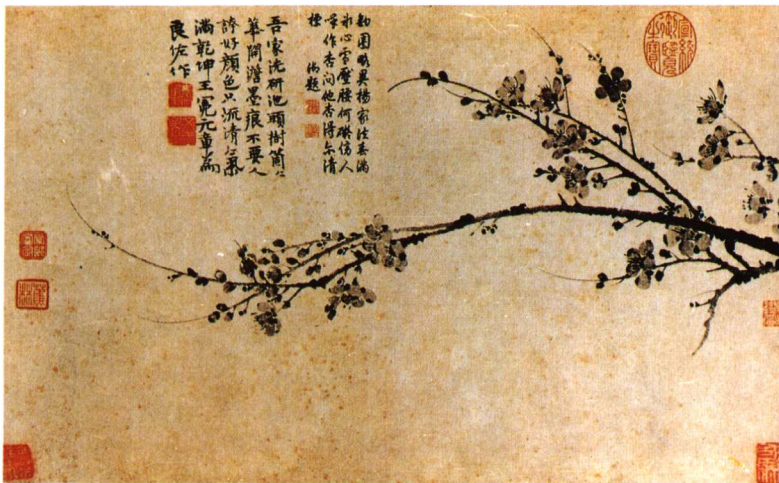 宣統御覽之寶
鈎圈略異楊家法春滿
氷心雪壓腰何礙傍人
喚作杏問他杏得尒清
標 御題
吾家洗研池頭樹箇〻
華開澹墨痕不要人
誇好顏色只流清氣
滿乾坤王冕元章為
良佐作